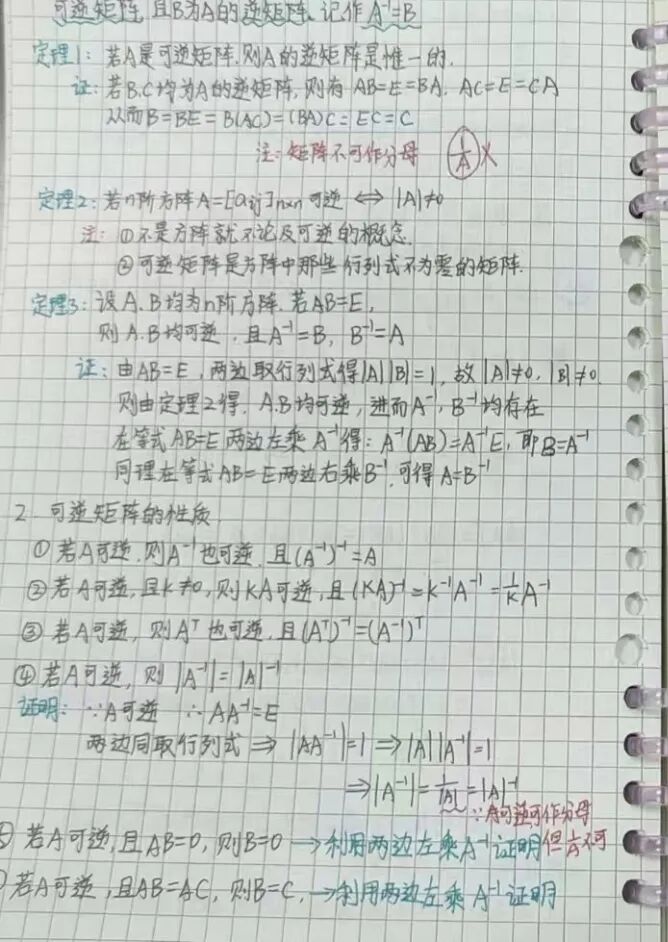 可逆矩阵,且B为A的逆矩阵.记作 A⁻¹=B
定理1:若A是可逆矩阵.则A的逆矩阵是惟一的.
证:若B.C均为A的逆矩阵,则有 AB=E=BA. AC=E=CA
从而B=BE=B(AC)=(BA)C=EC=C
注:矩阵不可作分母 1/A ×
定理2:若n阶方阵A=[aij]n×n可逆 ⟺ |A|≠0
注:①不是方阵就不论及可逆的概念.
②可逆矩阵是方阵中那些行列式不为零的矩阵.
定理3:设A.B均为n阶方阵.若AB=E,
则A.B均可逆.且A⁻¹=B, B⁻¹=A
证:由AB=E,两边取行列式得|A||B|=1,故|A|≠0,|B|≠0
则由定理2得.A.B均可逆,进而A⁻¹,B⁻¹均存在
在等式AB=E两边左乘A⁻¹得:A⁻¹(AB)=A⁻¹E,即B=A⁻¹
同理在等式AB=E两边右乘B⁻¹.可得A=B⁻¹
2.可逆矩阵的性质
①若A可逆.则A⁻¹也可逆.且(A⁻¹)⁻¹=A
②若A可逆,且k≠0,则kA可逆,且(kA)⁻¹=k⁻¹A⁻¹=1/k A⁻¹
③若A可逆,则Aᵀ也可逆,且(Aᵀ)⁻¹=(A⁻¹)ᵀ
④若A可逆,则|A⁻¹|=|A|⁻¹
证明:∵A可逆 ∴AA⁻¹=E
两边同取行列式⇒|AA⁻¹|=1⇒|A||A⁻¹|=1
⇒|A⁻¹|=1/|A|=|A|⁻¹
∵A可逆可作分母
⑤若A可逆,且AB=0,则B=0→利用两边左乘A⁻¹证明 但1/A不可
若A可逆,且AB=AC,则B=C.→利用两边左乘A⁻¹证明